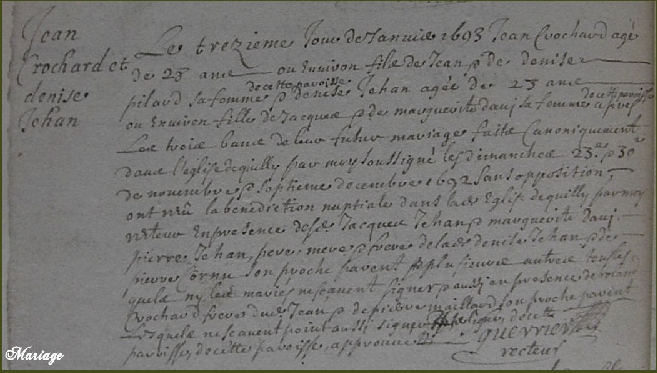 Jean
Crochard et
denise
Jehan
Le trezieme Jour de Janvie 1693 Jean Crochard agé
de 28 ans ou Environ fils de Jean p de denise
pilard sa femme p denise Jehan agée de 23 ans
de cette paroisse
de cette paroisse
ou Environ fille de Jacques p de marguerite dauj sa femme apres
Les trois bans de leur futur mariage faits Canoniquement
dans l'eglise de quilly par moy soussigné les dimanches 23e p 30e
de novembre p Septieme decembre 1692 Sans opposition,
ont receu la benediction nuptiale dans lad Eglise de quilly par moy
recteur En presence desd Jacques Jehan p marguerite dauj
pierre Jehan, pere mere p frere de lad denise Jehan p de
pierre Cornu son proche parent p plusieurs autres lesquels
ny les mariés ne scavent signer p aussi en presence de
Crochard frere dud Jean p de pierre maillard son proche parent
Lesquels ne scavent point aussi signer de cette
paroisse, de cette paroisse, approuvé
querrier
recteur
Mariage